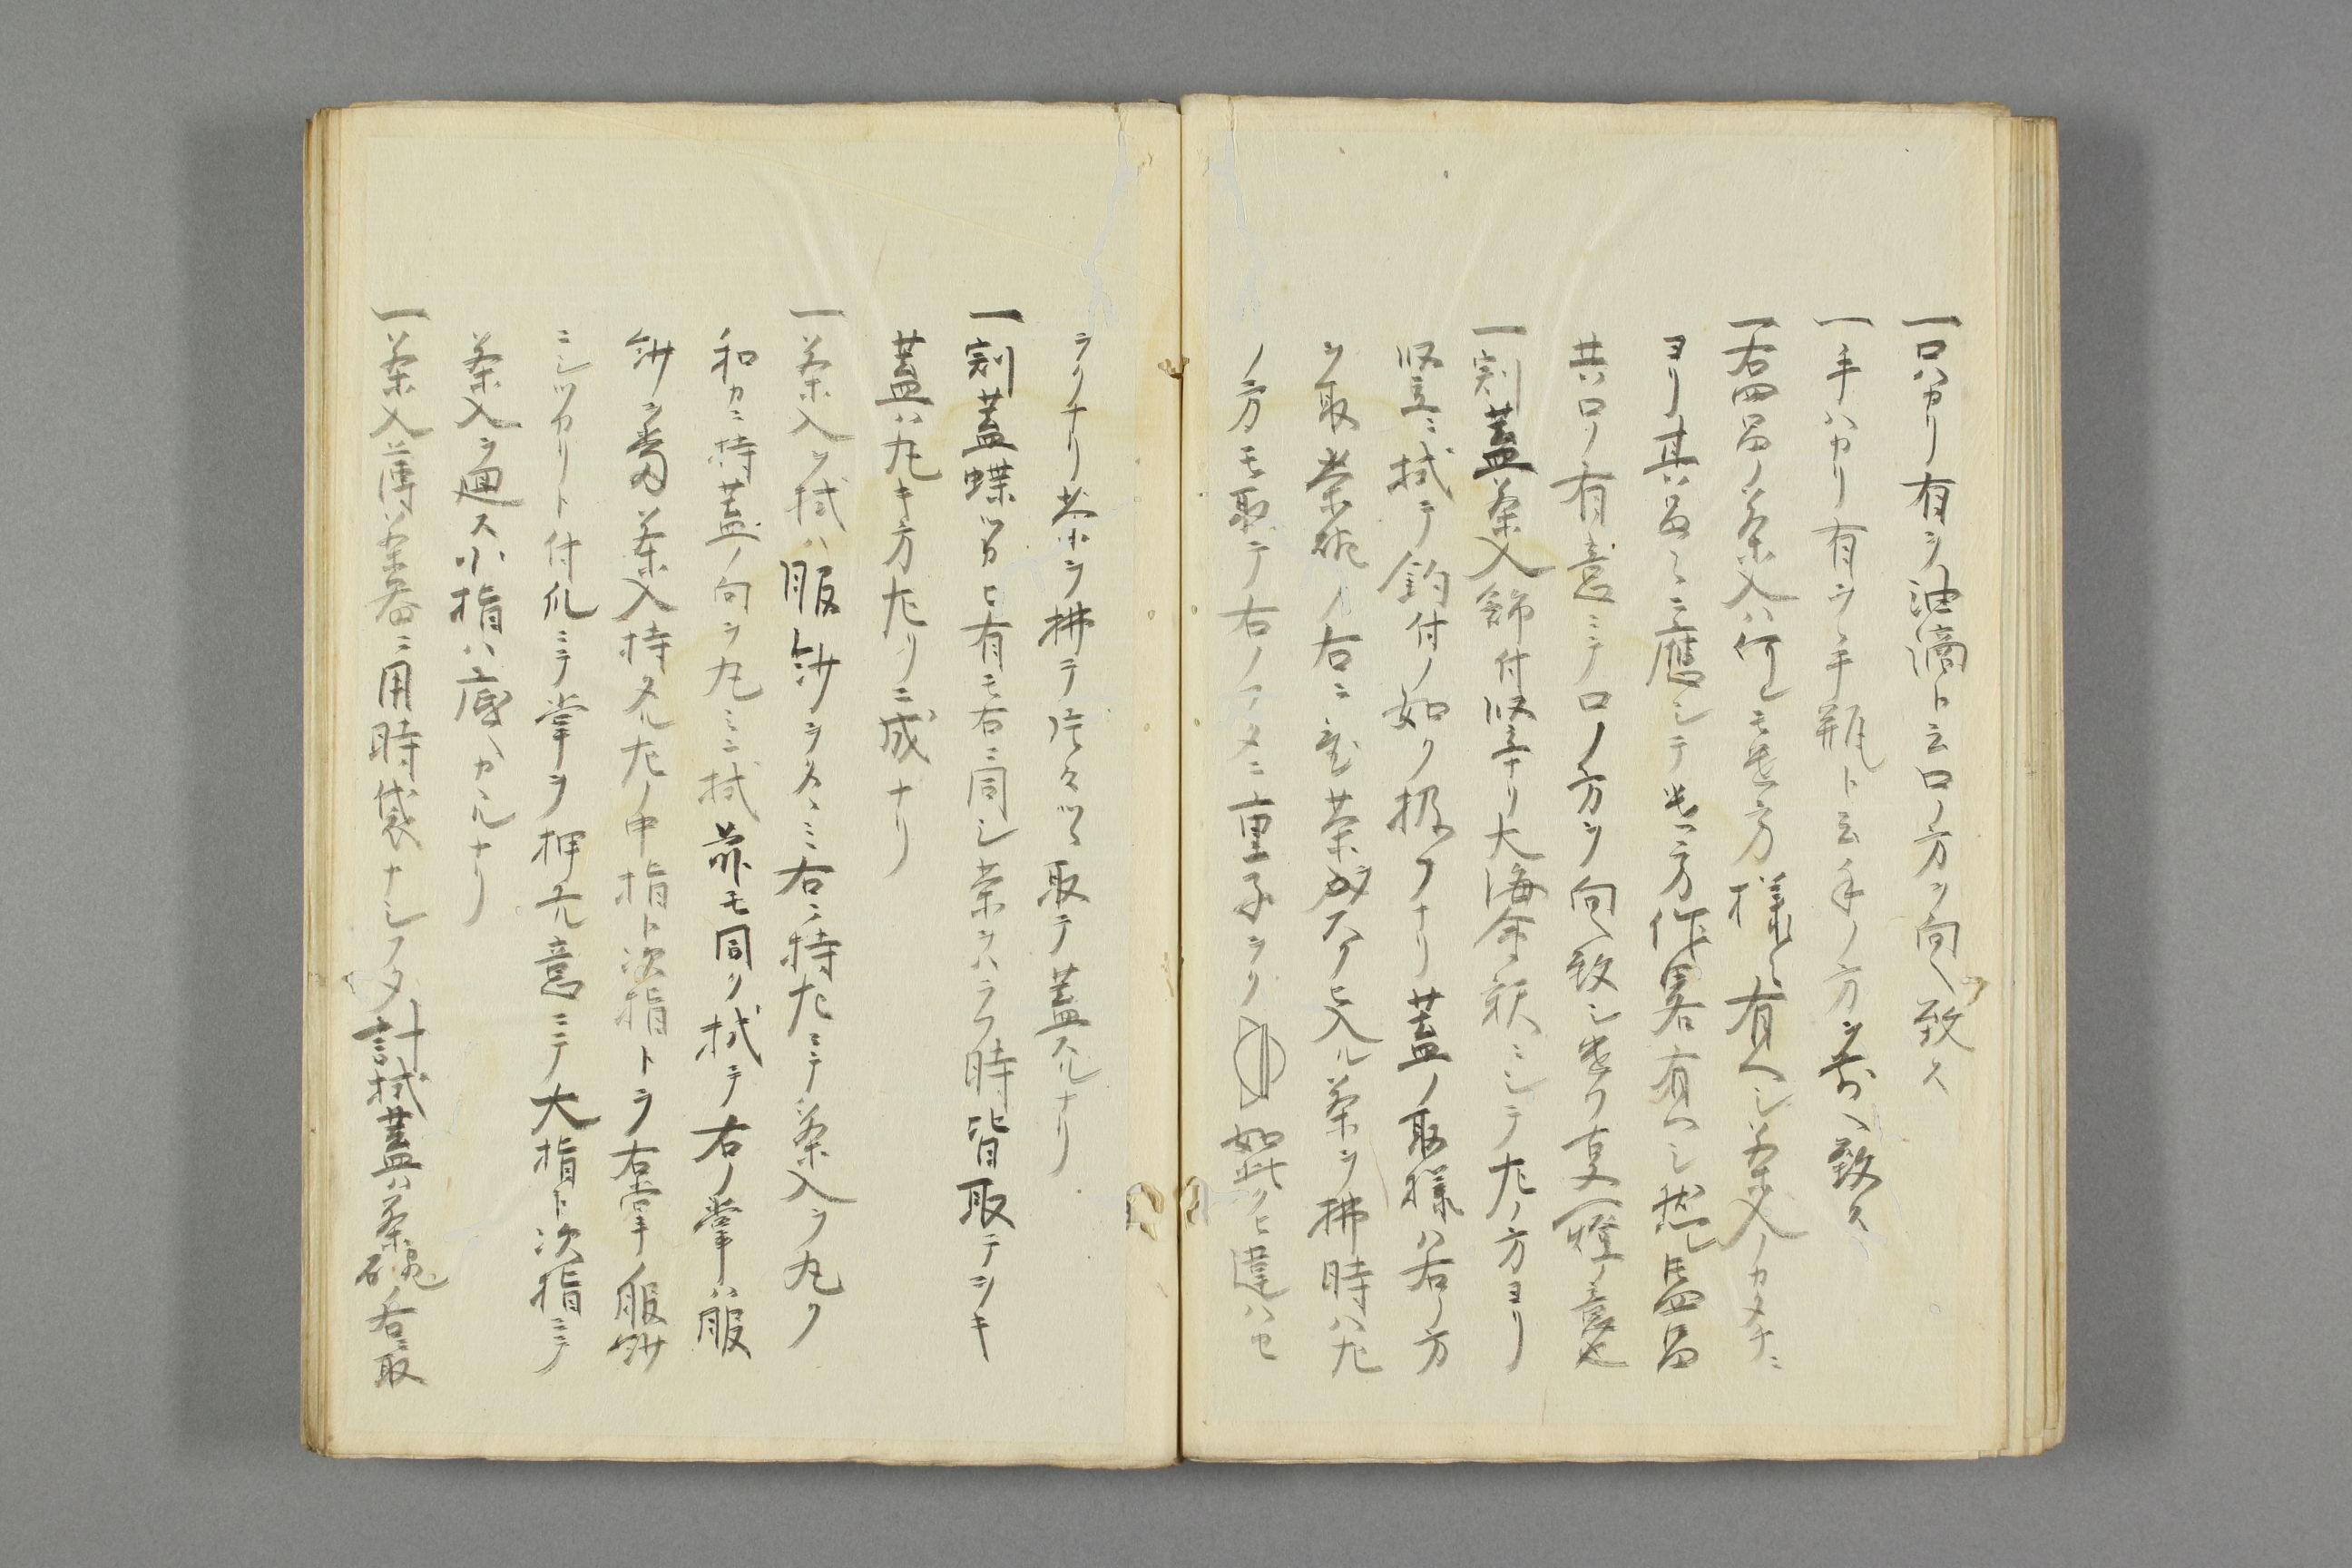 一口ハカリ有ヲ油滴ト云口ノ方ヲ向ヘ致ス
一手ハカリ有ヲ手瓶ト云手ノ方ヲ前ヘ致ス
一右四品ノ茶入ハ何レモ置方様々有ヘシ茶入ノカタチニ
ヨリ其品々ニ應シテ置方作畧有ヘシ
共口ノ有意ミテ口ノ方ヲ向ヘ致シ置ク
一割蓋茶入餝付竪ナリ大海ノ扱ニシテ左ノ方ヨリ
竪ニ拭テ餝付ノ如ク扱フナリ蓋ノ取様ハ右ノ方
ヲ取茶碗ノ右ニ置茶ヲスクヒ入ル茶ヲ拂時ハ左
ノ方モ取テ右ノフタニ重子ヲク如此クヒ違ハセ
ヲクナリ茶ヲ拂テ片々ツヽ取テ蓋スルナリ
一割蓋蝶ツカヒ有モ右ニ同シ茶ヲハラフ時皆取テヲキ
蓋ハ丸キ方左リニ成ナリ
一茶入ヲ拭ハ服紗ヲタヽミ右ニ持左ニテ茶入ヲ丸ク
和カニ持蓋ノ向ヲ丸ミニ拭前モ同ク拭テ右ノ掌ハ服
紗ヲ當茶入持タル左ノ中指ト次指トヲ右掌ノ服紗
ニシツカリト付爪ニテ掌ヲ押元意ニテ大指ト次指ニテ
茶入ヲ通ス小指ハ底ヘカヽルナリ
一茶入薄茶器ニ用時袋ナシフタ計拭蓋ハ茶碗ノ右ニ取